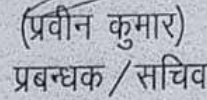 (प्रवीन कुमार)
प्रबन्धक / सचिव